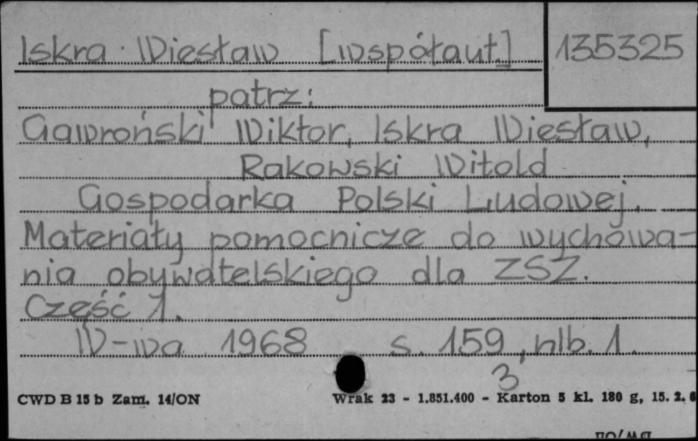 Iskra Wiesław [współaut.] 135325
patrz:
Gawroński Wiktor, Iskra Wiesław,
Rakowski Witold
Gospodarka Polski Ludowej.
Materiały pomocnicze do wychowa-
nia obywatelskiego dla ZSZ.
Część 1.
W-wa 1968 s. 159, nlb. 1.
3
CWD B 15 b Zam. 14/ON Wrak 23 - 1.851.400 - Karton 5 kl. 180 g, 15. 2. 6